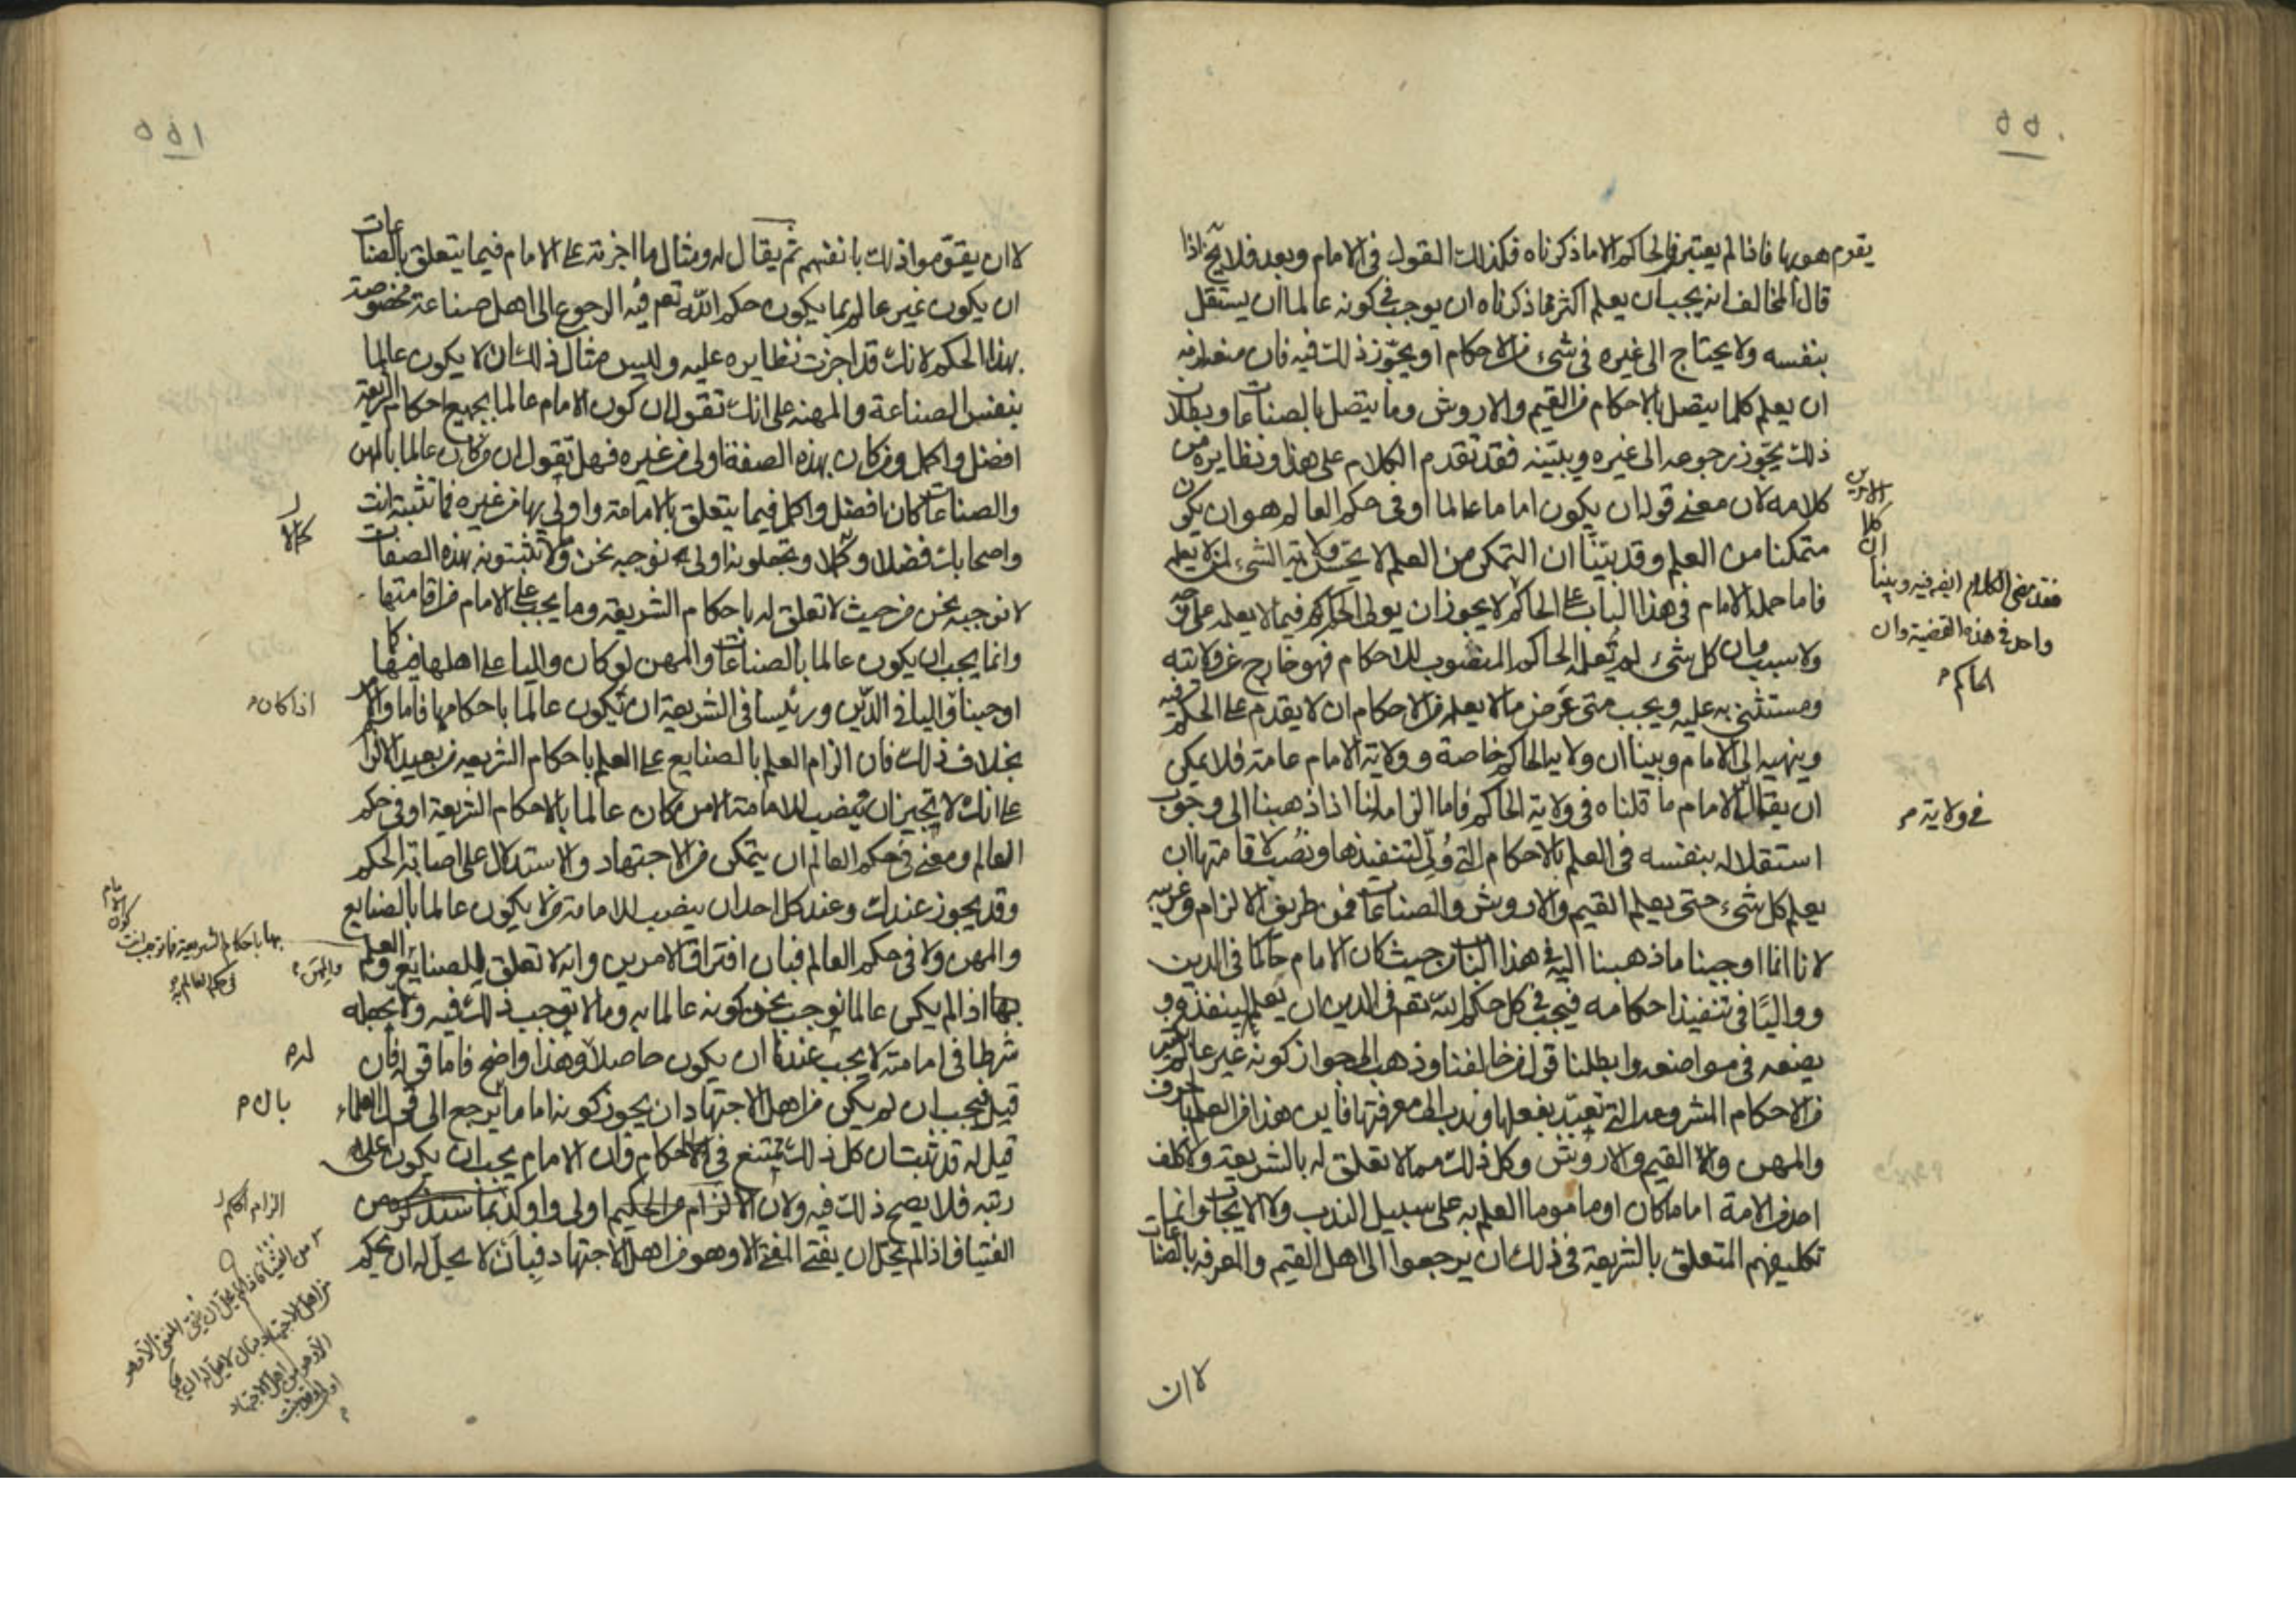 ٥٥٠
يقوم هو بها فاذا لم يعتبر في الحاكم الا ما ذكرناه فكذلك القول في الامام وبعد فلا يخ اذا
قال المخالف انه يجب ان يعلم اكثر مما ذكرناه ان يوجب في كونه عالما ان يستقل
بنفسه ولا يحتاج الى غيره في شيء من الاحكام او يجوّز ذلك فيه فان منع لزمه
ان يعلم كلما يتصل بالاحكام من القيم والاروش وما يتصل بالصناعات وبطلان
ذلك يجوّز رجوعه الى غيره ويبيّنه فقد تقدم الكلام على هذا ونظايره من
كلامه لان معنى قولنا يكون اماما عالما او في حكم العالم هو ان يكون
متمكنا من العلم وقد بيّنّا ان التمكن من العلم لا يحسّن ولاية الشيء لمن لا يعلمه
فاما حمله الامام في هذا الباب على الحاكم لا يجوز ان يولى الحاكم فيما لا يعلمه على وجه
ولا سبب وان كل شيء لم يعلمه الحاكم المنصوب للاحكام فهو خارج عن ولايته
ومستثنى به عليه ويجب متى عرض ما لا يعلمه من الاحكام ان لا يقدم على الحكم فيه
وينهيه الى الامام وبينا ان ولاية الحاكم خاصة وولاية الامام عامة فلا يمكن
ان يقال في الامام ما قلناه في ولاية الحاكم فاما الزامه لنا اذا ذهبنا الى وجوب
استقلاله بنفسه في العلم بالاحكام التي وُلّي لتنفيذها ونُصب لاقامتها ان
يعلم كل شيء حتى يعلم القيم والاروش والصناعات فمن طريف الالزام وغريبه
لانا انما اوجبنا ما ذهبنا اليه في هذا الباب من حيث كان الامام حاكما في الدين
وواليًا في تنفيذ احكامه فيجب في كل حكم لله تعم في الدين ان يعلمه لينفذه و
يضعه في مواضعه وابطلنا قول من خالفنا وذهب الى جواز كونه غير عالم بكثير
من الاحكام المشروعة التي تعبّد بفعلها وندب الى معرفتها فاين هذا من العلم بالحرف
والمهن والقيم والاروش وكل ذلك مما لا تعلق له بالشريعة ولا كلف
احد من الامة اماما كان او ماموما العلم به على سبيل الندب ولا الايجاب وانما
تكليفهم المتعلق بالشريعة في ذلك ان يرجعوا الى اهل القيم والمعرفة بالصناعات
لا ان
الامرين
كلا
ان
فقد مضى الكلام ايضه فيه وبينا
واحد في هذه القضية وان
الحاكم م
في ولاية م
٥٥١
لا ان يقوّموا ذلك بانفسهم ثم يقال له ومثال ما اجزته على الامام فيما يتعلق بالصناعات
ان يكون غير عالم بما يكون حكم الله تعم فيه الرجوع الى اهل صناعة مخصوصة
بهذا الحكم لانك قد اجزت نظايره عليه وليس مثال ذلك ان لا يكون عالما
بنفس الصناعة والمهنة على انك تقول ان كون الامام عالما بجميع احكام الشريعة
افضل واكمل ومن كان بهذه الصفة اولى من غيره فهل تقول ان من كان عالما بالمهن
والصناعات كان افضل واكمل فيما يتعلق بالامامة واولى بها من غيره فما تثبته انت
واصحابك فضلا وكمالا وتجعلونه اولى به نوجبه نحن وما لا تثبتونه بهذه الصفات
لا نوجبه نحن من حيث لا تعلق له باحكام الشريعة وما يجب على الامام من اقامتها
وانما يجب ان يكون عالما بالصناعات والمهن لو كان واليا على اهلها فيها كما
اوجبنا واليا في الدين ورئيسا في الشريعة ان يكون عالما باحكامها فاما والامر
بخلاف ذلك فان الزام العلم بالصنايع على العلم باحكام الشريعة من بعيد الالزام
على انك لا تجيز ان ينصب للامامة الا من كان عالما بالاحكام الشريعة او في حكم
العالم ومعنى في حكم العالم ان يتمكن من الاجتهاد والاستدلال على اصابة الحكم
وقد يجوز عندك وعند كل احد ان ينصب للامامة من لا يكون عالما بالصنايع
والمهن ولا في حكم العالم فبان افتراق الامرين وانه لا تعلق للصنايع والعلم
بها اذا لم يكن عالما نوجب نحن كونه عالما به وما لا توجب ذلك فيه ولا تجعله
شرطا في امامته لا يجب عندنا ان يكون حاصلا وهذا واضح فاما قوله فان
قيل فيجب ان لم يكن من اهل الاجتهاد ان يجوز كونه اماما يرجع الى قول العلماء
قيل له قد ثبت ان كل ذلك ممتنع في الاحكام وان الامام يجب ان يكون اعلى
رتبة فلا يصح ذلك فيه ولان الالزام من الحكيم اولى واوكد مما سنذكره من
الفتيا فاذا لم يحل ان يفتي المفتي الا وهو من اهل الاجتهاد فبان لا يحل له ان يحكم
اذا كان م
كون الامام
بها باحكام الشريعة فما توجب انت
في حكم العالم
والمهن م
له م
بان م
الزام الحاكم
من الفتيا فاذا لم يحل ان يفتي المفتي الا وهو
من اهل الاجتهاد فبان لا يحل له ان يحكم
الا وهو من اهل الاجتهاد